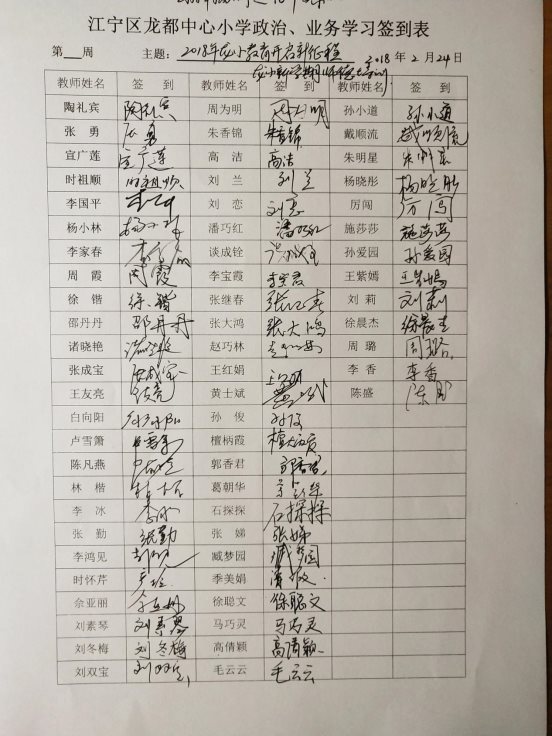 江宁区龙都中心小学政治、业务学习签到表
第___周 主题：2018年龙小教育开启新征程 2018年2月24日
龙小新学期师德培训
教师姓名 签 到 教师姓名 签 到 教师姓名 签 到
陶礼宾 陶礼宾 周为明 周为明 孙小道 孙小道
张 勇 张勇 朱香锦 朱香锦 戴顺流 戴顺流
宣广莲 宣广莲 高 洁 高洁 朱明星 朱明星
时祖顺 时祖顺 刘 兰 刘兰 杨晓彤 杨晓彤
李国平 刘 恋 刘恋 厉闯 厉闯
杨小林 杨小林 潘巧红 潘巧红 施莎莎 施莎莎
李家春 谈成铨 孙爱园 孙爱园
周 霞 周霞 李宝霞 李宝霞 王紫嫣 王紫嫣
徐 锴 徐锴 张继春 张继春 刘 莉 刘莉
邵丹丹 邵丹丹 张大鸿 张大鸿 徐晨杰 徐晨杰
诸晓艳 诸晓艳 赵巧林 周 璐 周璐
张成宝 张成宝 王红娟 李 香 李香
王友亮 黄士斌 陈盛 陈盛
白向阳 孙 俊 孙俊
卢雪箫 檀柄霞
陈凡燕 郭香君 郭香君
林 楷 林楷 葛朝华
李 冰 李冰 石探探 石探探
张 勤 张勤 张 娣 张娣
李鸿见 臧梦园 臧梦园
时怀芹 季美娟
佘亚丽 佘亚丽 徐聪文 徐聪文
刘素琴 刘素琴 马巧灵 马巧灵
刘冬梅 刘冬梅 高倩颖 高倩颖
刘双宝 刘双宝 毛云云 毛云云